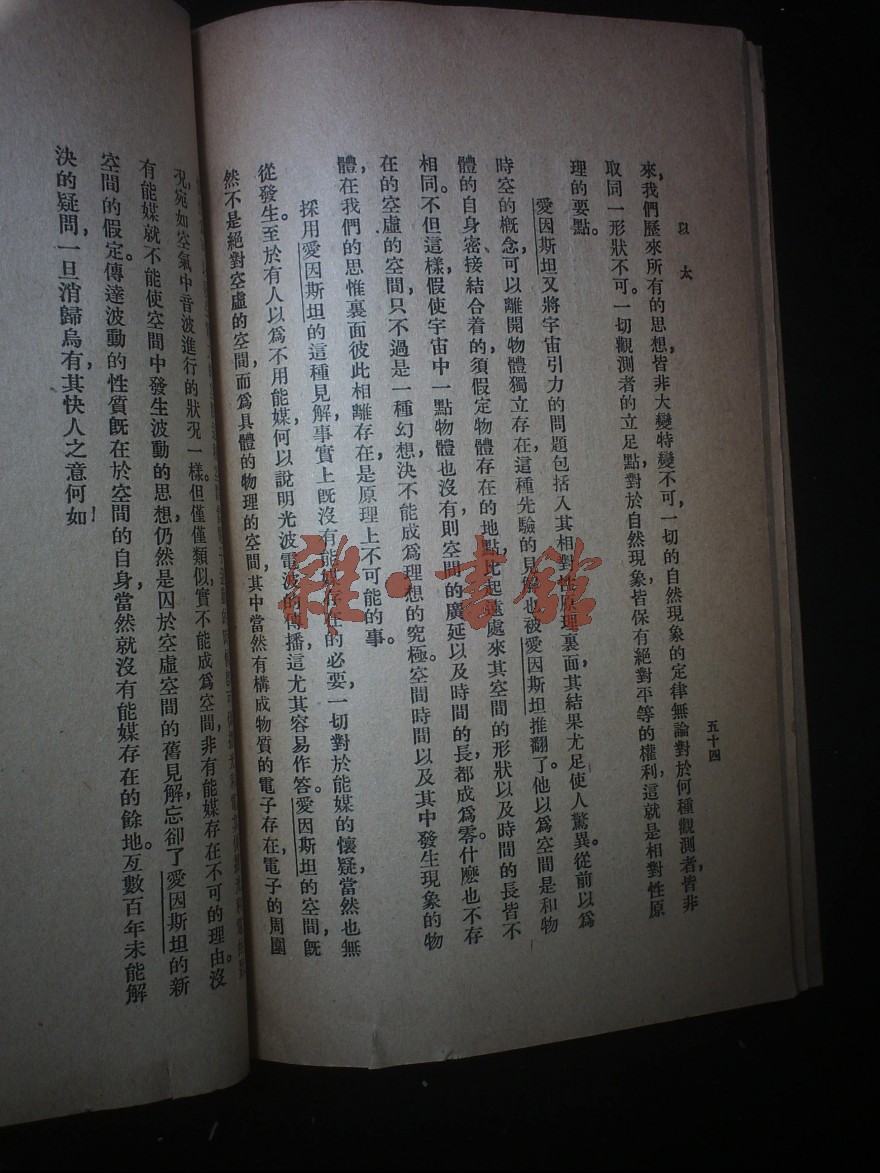 以太
五十四
來，我們歷來所有的思想皆非大變特變不可，一切的自然現象的定律無論對於何種觀測者皆非
取同一形狀不可。一切觀測者的立足點對於自然現象皆保有絕對平等的權利，這就是相對性原
理的要點。
愛因斯坦又將宇宙引力的問題包括入其相對性原理裏面，其結果尤足使人驚異。從前以爲
時空的概念，可以離開物體獨立存在，這種先驗的見解也被愛因斯坦推翻了。他以爲空間是和物
體的自身密接結合着的，須假定物體存在的地點比起遠處來，其空間的形狀以及時間的長皆不
相同。不但這樣，假使宇宙中一點物體也沒有，則空間的廣延以及時間的長都成爲零。什麽也不存
在的空虛的空間，只不過是一種幻想，決不能成爲理想的究極。空間時間以及其中發生現象的物
體，在我們的思惟裏面彼此相離存在，是原理上不可能的事。
採用愛因斯坦的這種見解，事實上既沒有能媒存在的必要，一切對於能媒的懷疑當然也無
從發生。至於有人以爲不用能媒何以說明光波電波的傳播，這尤其容易作答。愛因斯坦的空間，既
然不是絕對空虛的空間，而爲具體的物理的空間，其中當然有構成物質的電子存在，電子的周圍
況，宛如空氣中音波進行的狀況一樣。但僅僅類似，實不能成爲空間，非有能媒存在不可的理由。沒
有能媒就不能使空間中發生波動的思想，仍然是囚於空虛空間的舊見解，忘却了愛因斯坦的新
空間的假定。傳達波動的性質既在於空間的自身，當然就沒有能媒存在的餘地。亙數百年未能解
決的疑問，一旦消歸烏有，其快人之意何如！
雜·書館